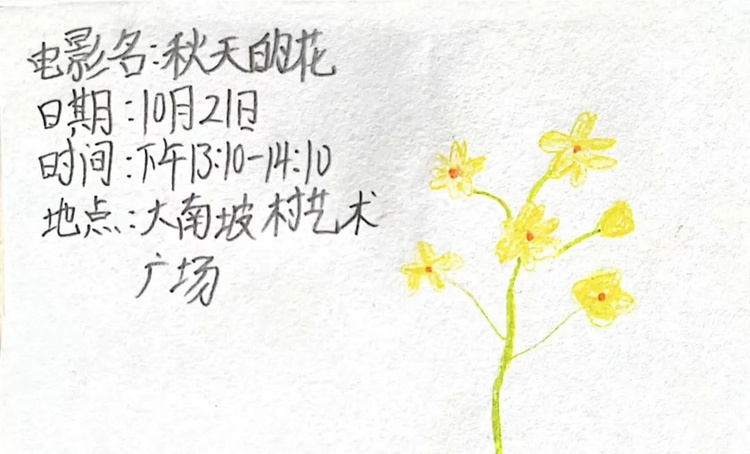 电影名:秋天的花
日期:10月21日
时间:下午13:10-14:10
地点:大南坡村艺术
广场